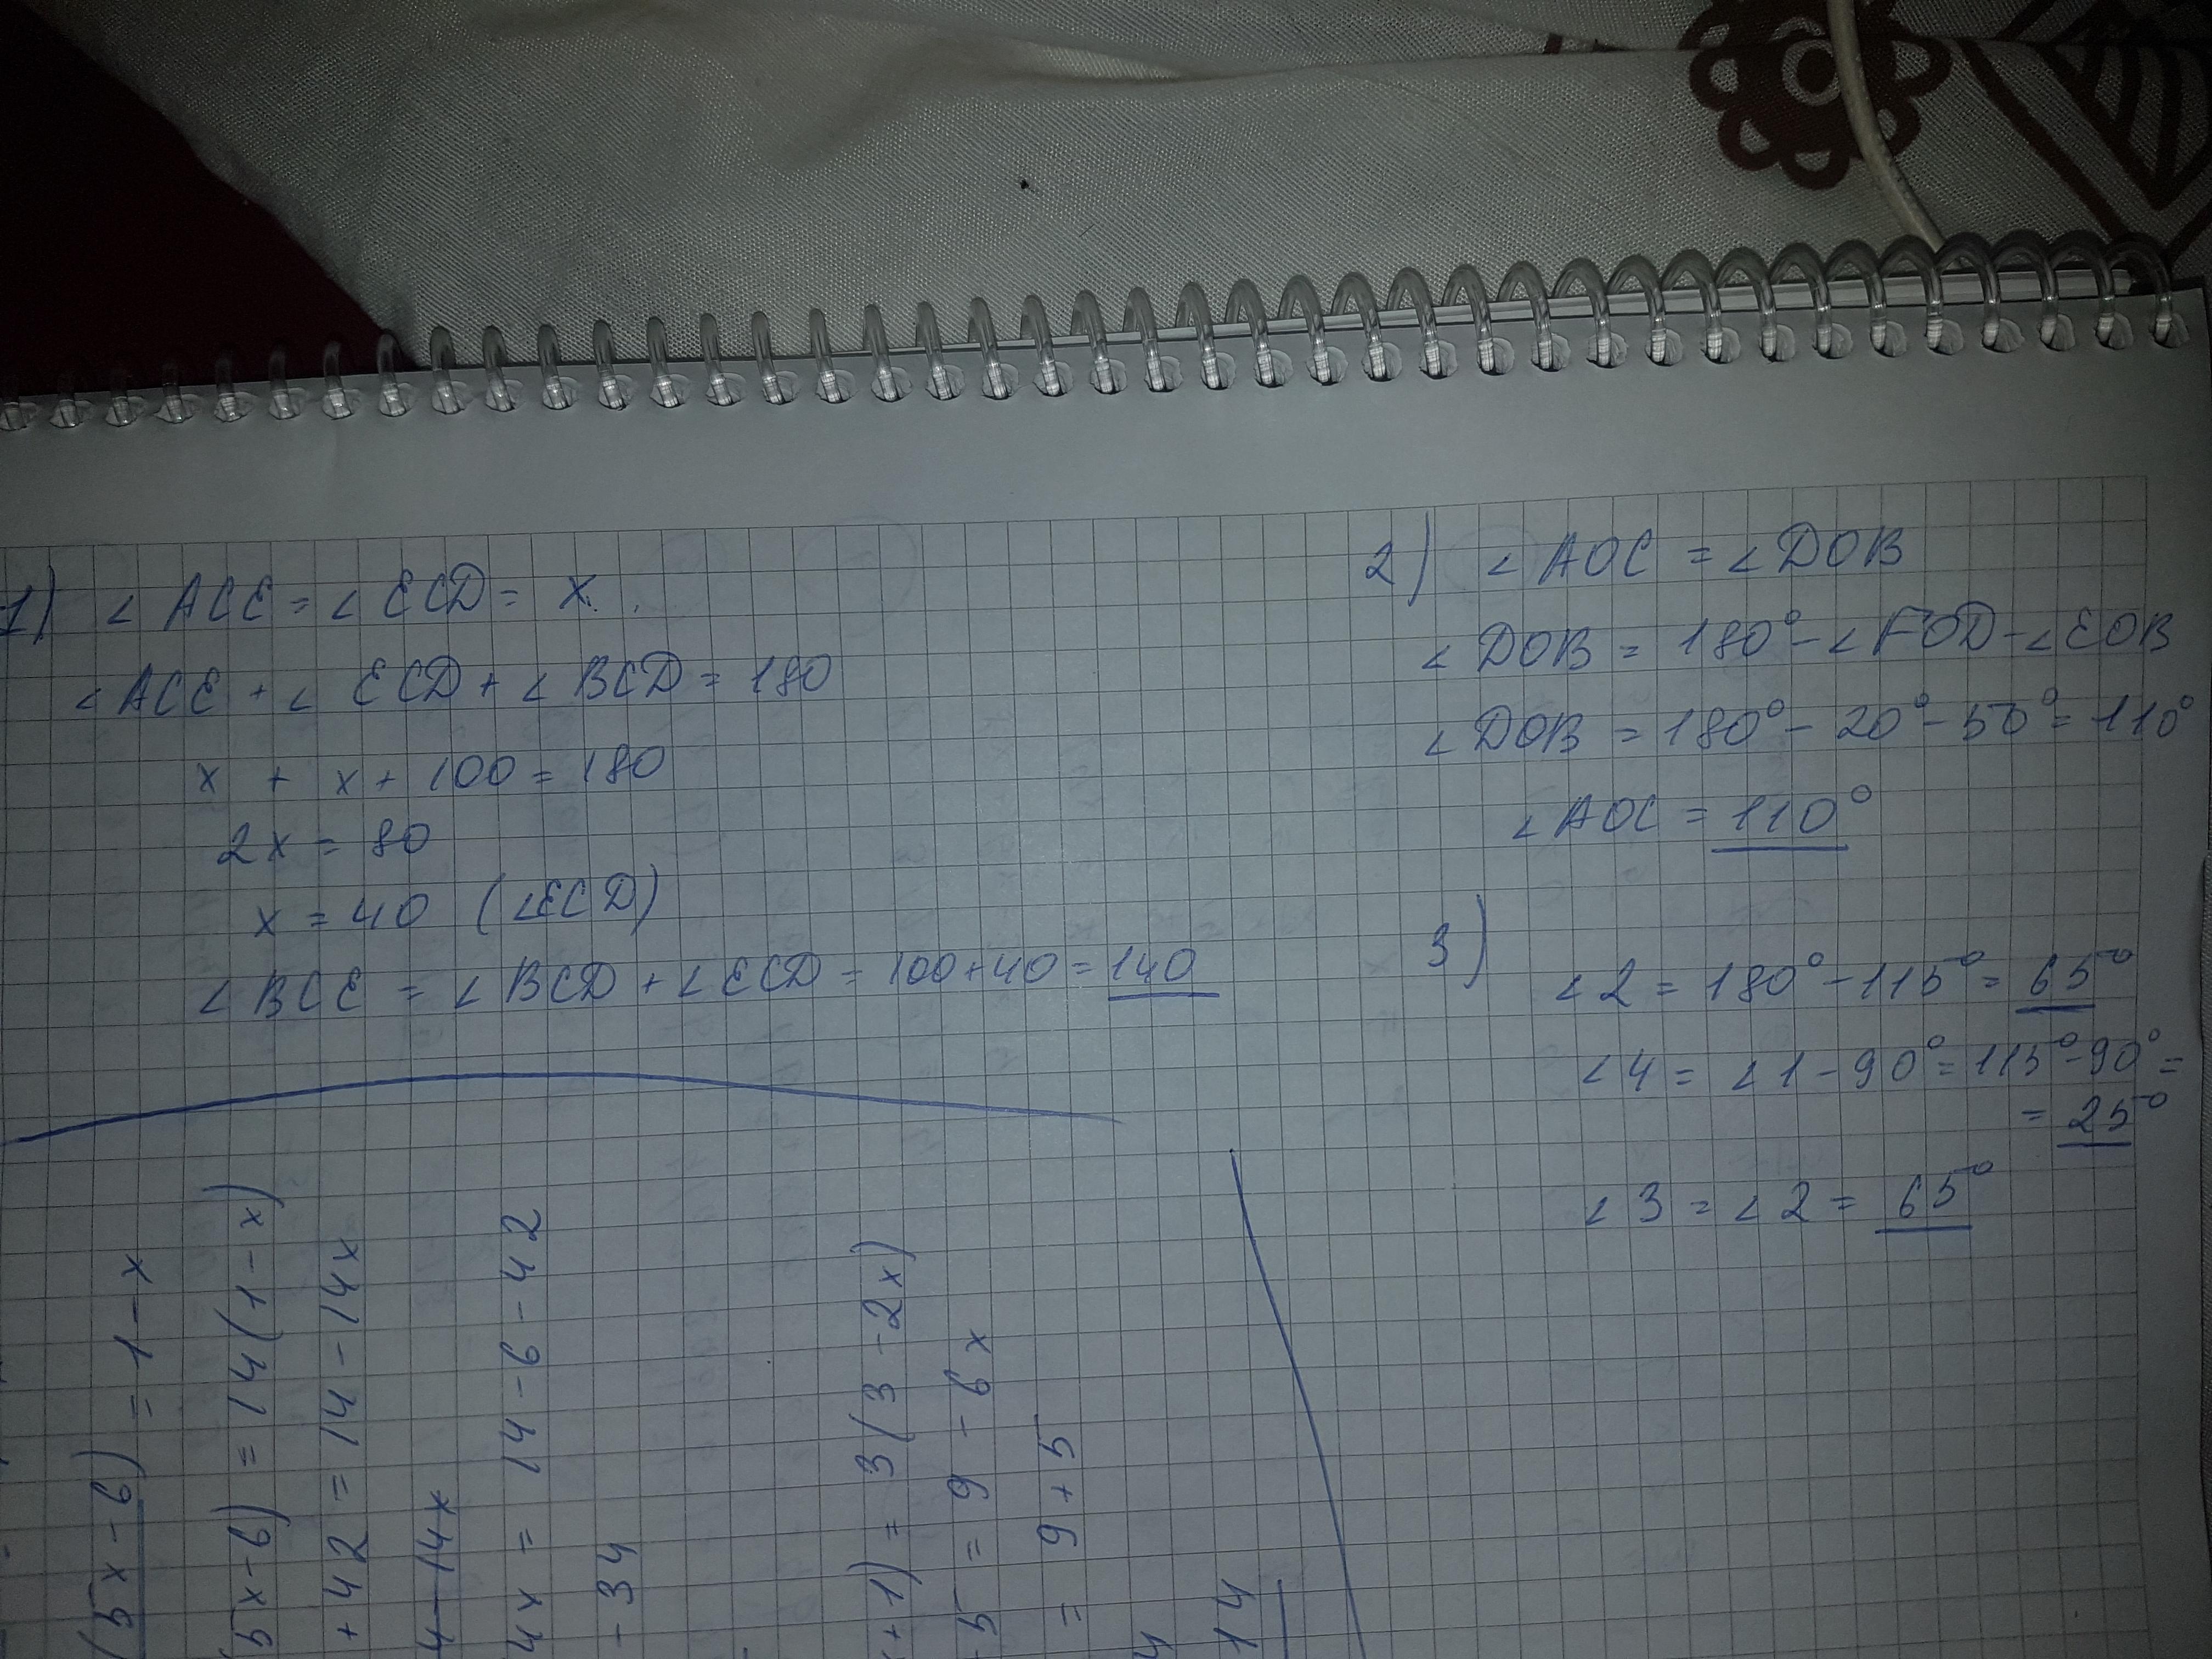 1) ∠ ACE = ∠ ECD = x.
∠ ACE + ∠ ECD + ∠ BCD = 180
x + x + 100 = 180
2x = 80
x = 40 (∠ECD)
∠ BCE = ∠ BCD + ∠ ECD = 100+40 = 140
2) ∠ AOC = ∠ DOB
∠ DOB = 180° - ∠ FOD - ∠ EOB
∠ DOB = 180° - 20° - 50° = 110°
∠ AOC = 110°
3) ∠ 2 = 180° - 115° = 65°
∠ 4 = ∠ 1 - 90° = 115° - 90° =
= 25°
∠ 3 = ∠ 2 = 65°
(5x - 6) = 1 - x
5x - 6) = 14 (1 - x)
+ 42 = 14 - 14x
4 - 14x
4x = 14 - 6 - 42
- 34
+ 1) = 3 (3 - 2x)
5 = 9 - 6x
= 9 + 5
14